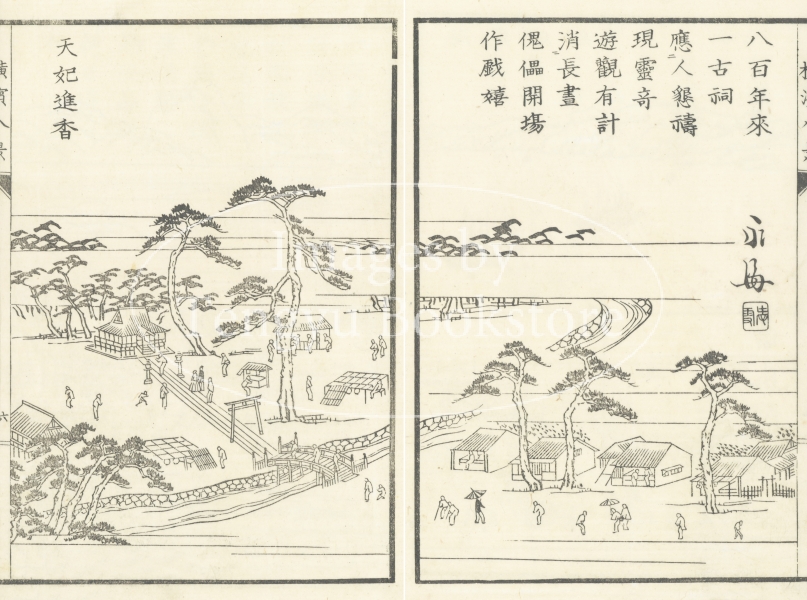 八百年來
一古祠
應人懇禱
二
現靈奇
遊觀有計
消長晝
傀儡開場
作戲嬉
天妃進香
橫濱八景
六
Images by
Tenryu Bookstore